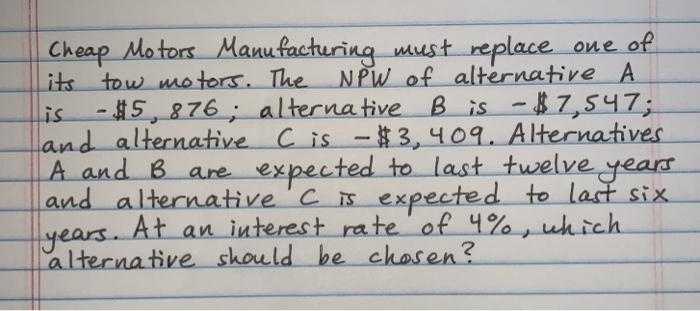 Cheap Motors Manufacturing must replace one of
its tow motors. The NPW of alternative A
is -$5,876; alternative B is -$7,547;
and alternative C is -$3,409. Alternatives
A and B are expected to last twelve years
and alternative C is expected to last six
years. At an interest rate of 4%, which
alternative should be chosen?